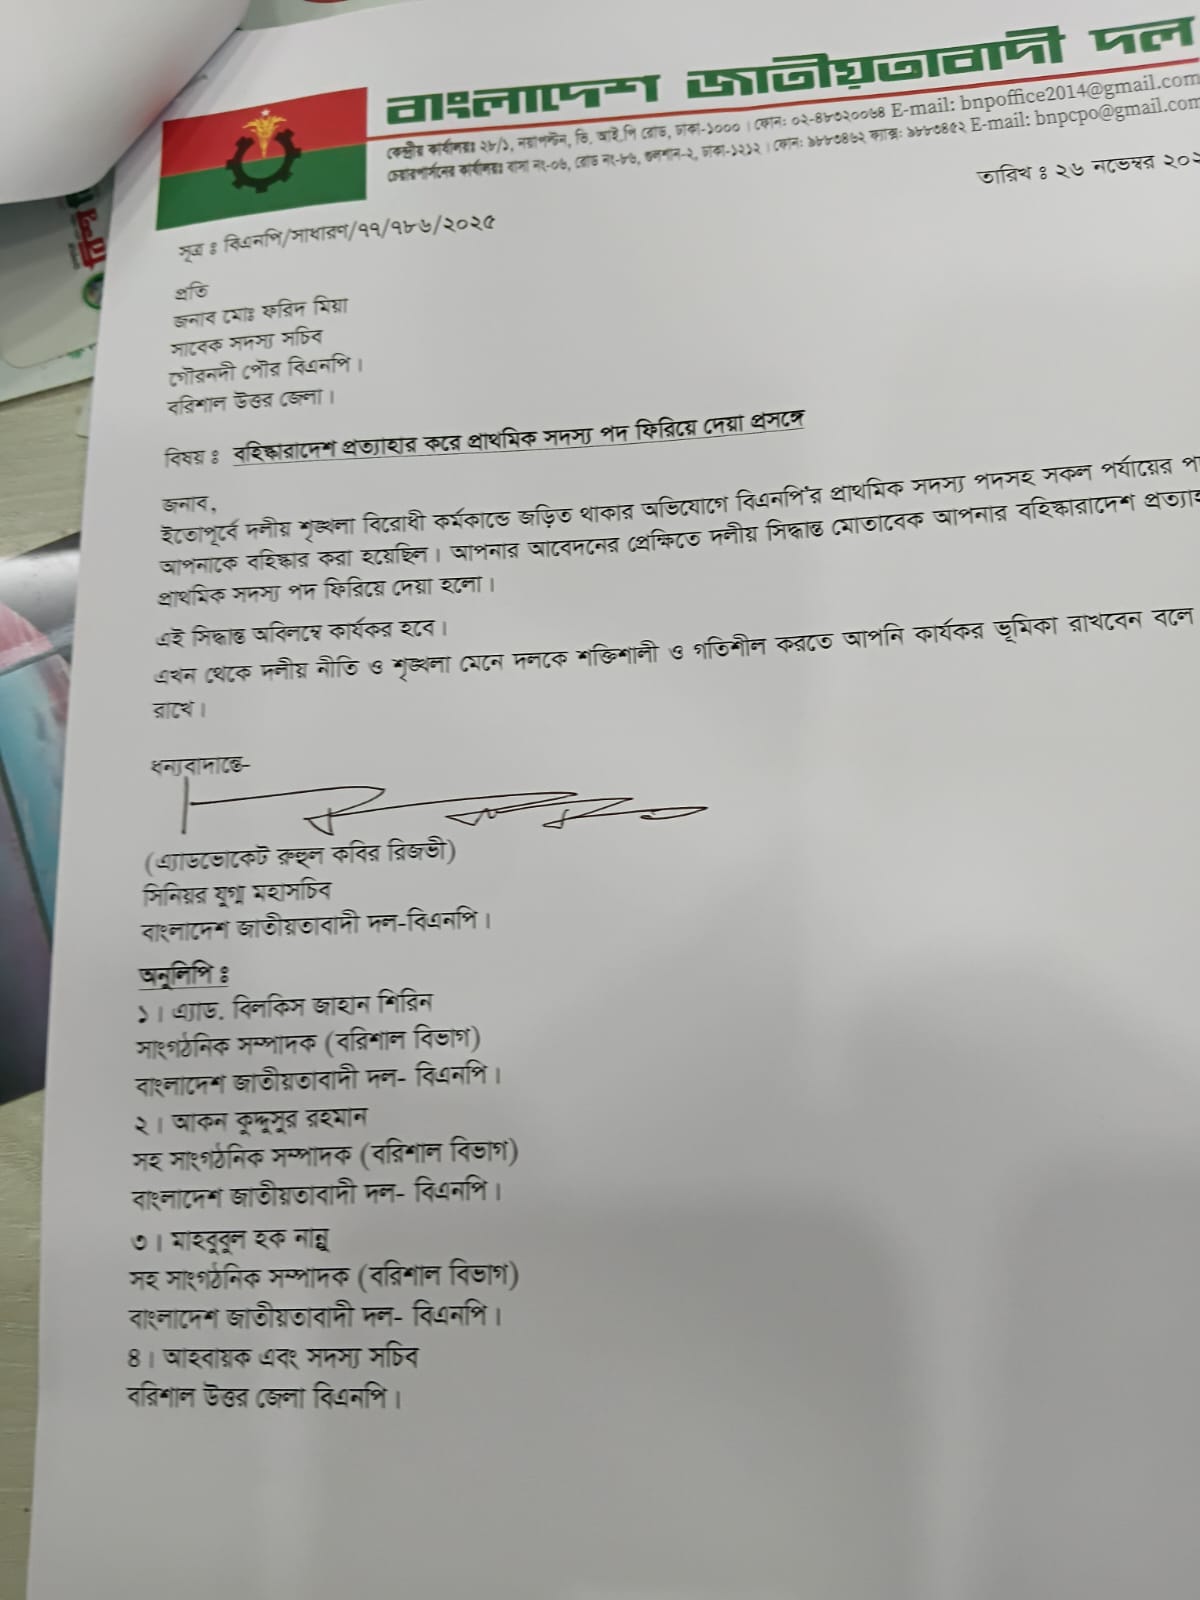 বাংলাদেশ জাতীয়তাবাদী দল
কেন্দ্রীয় কার্যালয়ঃ ২৮/১, নয়াপল্টন, ভি. আই.পি রোড, ঢাকা-১০০০। ফোন: ০২-৪৮৩২০০৬৪ E-mail: bnpoffice2014@gmail.com
চেয়ারপার্সনের কার্যালয়ঃ বাসা নং-০৬, রোড নং-৮৬, গুলশান-২, ঢাকা-১২১২। ফোন: ৯৮৮৩৪৬২ ফ্যাক্স: ৯৮৮৩৪৫২ E-mail: bnpcpo@gmail.com
তারিখ ঃ ২৬ নভেম্বর ২০২
সূত্র ঃ বিএনপি/সাধারণ/৭৭/৭৮৬/২০২৫
প্রতি
জনাব মোঃ ফরিদ মিয়া
সাবেক সদস্য সচিব
গৌরনদী পৌর বিএনপি।
বরিশাল উত্তর জেলা।
বিষয় ঃ বহিষ্কারাদেশ প্রত্যাহার করে প্রাথমিক সদস্য পদ ফিরিয়ে দেয়া প্রসঙ্গে
জনাব,
ইতোপূর্বে দলীয় শৃঙ্খলা বিরোধী কর্মকান্ডে জড়িত থাকার অভিযোগে বিএনপি'র প্রাথমিক সদস্য পদসহ সকল পর্যায়ের
আপনাকে বহিষ্কার করা হয়েছিল। আপনার আবেদনের প্রেক্ষিতে দলীয় সিদ্ধান্ত মোতাবেক আপনার বহিষ্কারাদেশ
প্রাথমিক সদস্য পদ ফিরিয়ে দেয়া হলো।
এই সিদ্ধান্ত অবিলম্বে কার্যকর হবে।
এখন থেকে দলীয় নীতি ও শৃঙ্খলা মেনে দলকে শক্তিশালী ও গতিশীল করতে আপনি কার্যকর ভূমিকা রাখবেন বলে
রাখে।
ধন্যবাদান্তে-
(এ্যাডভোকেট রুহুল কবির রিজভী)
সিনিয়র যুগ্ম মহাসচিব
বাংলাদেশ জাতীয়তাবাদী দল-বিএনপি।
অনুলিপি ঃ
১। এ্যাড. বিলকিস জাহান শিরিন
সাংগঠনিক সম্পাদক (বরিশাল বিভাগ)
বাংলাদেশ জাতীয়তাবাদী দল- বিএনপি।
২। আকন কুদ্দুসুর রহমান
সহ সাংগঠনিক সম্পাদক (বরিশাল বিভাগ)
বাংলাদেশ জাতীয়তাবাদী দল- বিএনপি।
৩। মাহবুবুল হক নান্নু
সহ সাংগঠনিক সম্পাদক (বরিশাল বিভাগ)
বাংলাদেশ জাতীয়তাবাদী দল- বিএনপি।
৪। আহবায়ক এবং সদস্য সচিব
বরিশাল উত্তর জেলা বিএনপি।